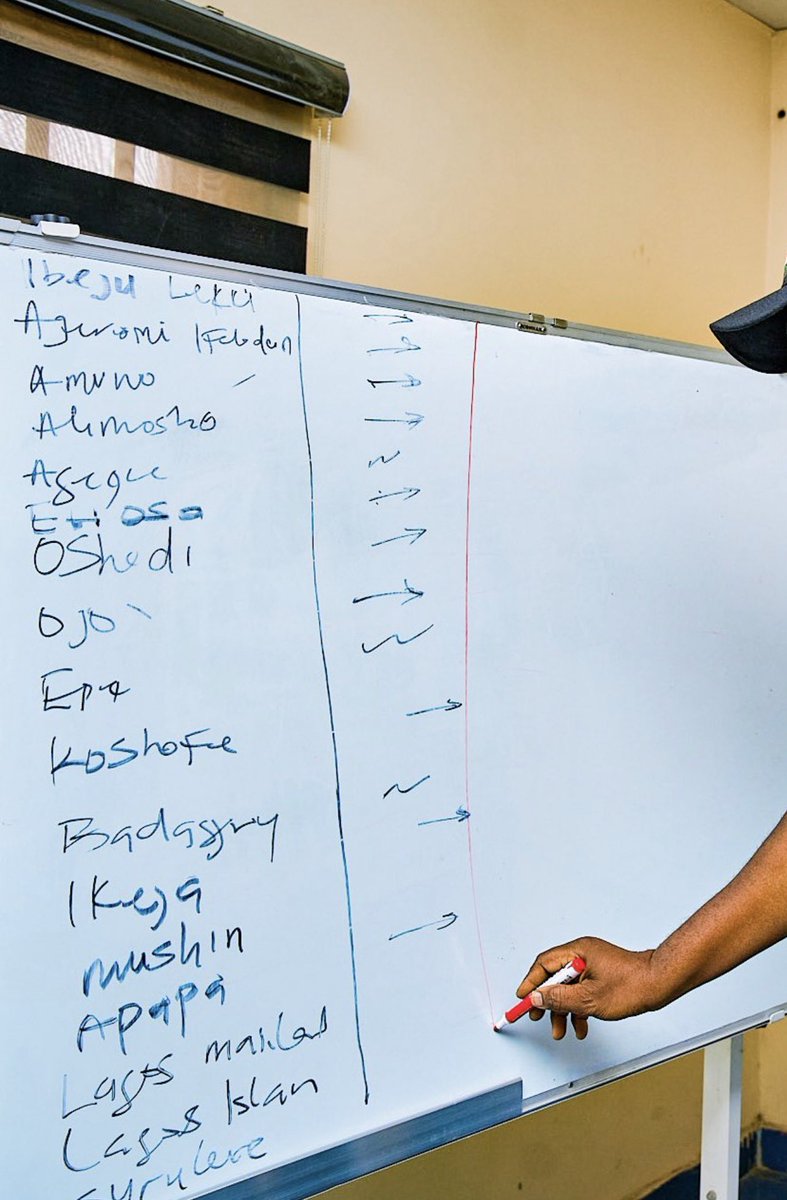 Ibeju Lekki
Ajeromi Ifelodun
Amuwo
Alimosho
Agege
Eti osa
OShodi
OJO
Epe
KoShoFe
Badagry
IKeja
mushin
Apapa
Lagos mainland
Lagos Islan
surulere